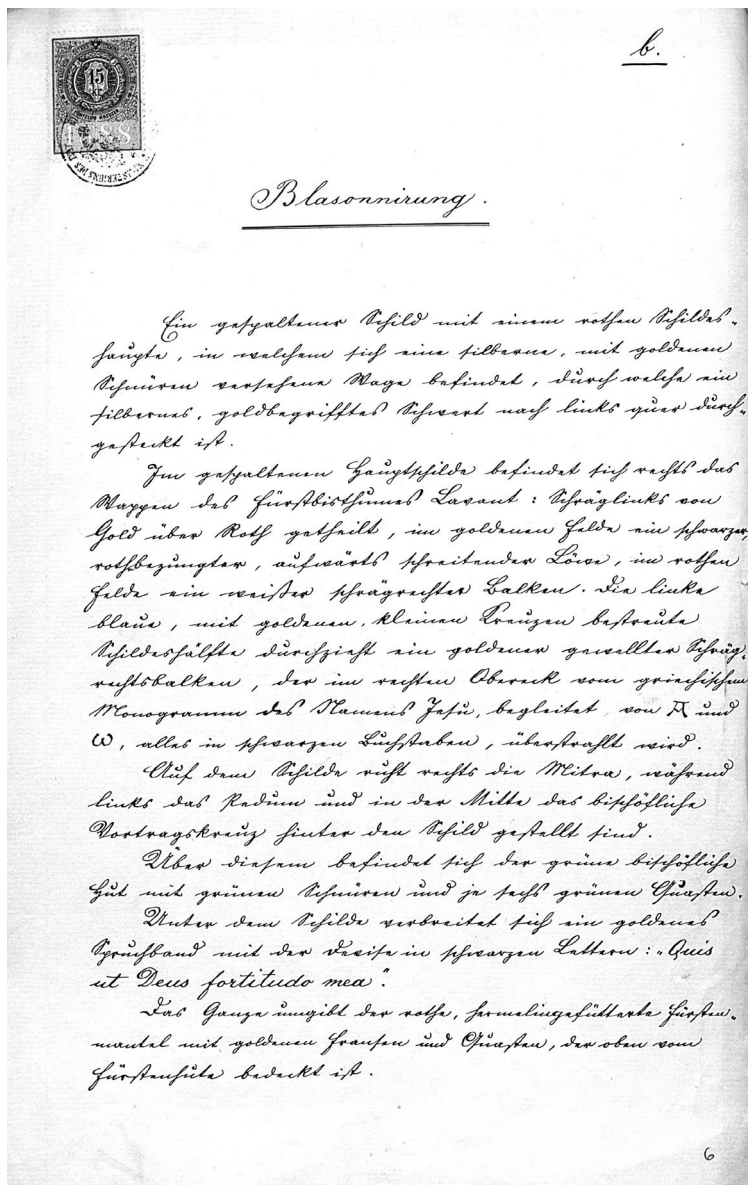 b.
15
kr.
1888
Blasonnirung.
Ein gespaltener Schild mit einem rothen Schildes-
haupte, in welchem sich eine silberne, mit goldenen
Schnüren versehene Wage befindet, durch welche ein
silbernes, goldbegrifftes Schwert nach links quer durch-
gesteckt ist.
Im gespaltenen Hauptschilde befindet sich rechts das
Wappen des Fürstbisthumes Lavant: Schräglinks von
Gold über Roth getheilt, im goldenen Felde ein schwarzer,
rothbezungter, aufwärts schreitender Löwe, im rothen
Felde ein weißer schrägrechter Balken. Die linke
blaue, mit goldenen, kleinen Kreuzen bestreute
Schildeshälfte durchzieht ein goldener gewellter Schräg-
rechtsbalken, der im rechten Obereck vom griechischen
Monogramm des Namens Jesu, begleitet von A und
ω, alles in schwarzen Buchstaben, überstrahlt wird.
Auf dem Schilde ruht rechts die Mitra, während
links das Pedum und in der Mitte das bischöfliche
Vortragskreuz hinter den Schild gestellt sind.
Über diesem befindet sich der grüne bischöfliche
Hut mit grünen Schnüren und je sechs grünen Quasten.
Unter dem Schilde verbreitet sich ein goldenes
Spruchband mit der Devise in schwarzen Lettern: „Quis
ut Deus fortitudo mea".
Das Ganze umgibt der rothe, hermelingefütterte Fürsten-
mantel mit goldenen Fransen und Quasten, der oben vom
Fürstenhute bedeckt ist.
6